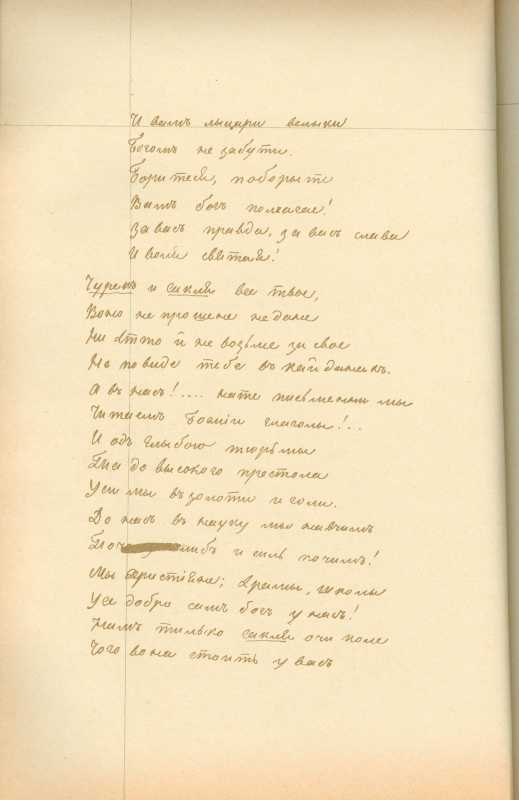 И вамъ лыцари велыки
Богомъ не забути.
Боритеся, поборыте
Вамъ богъ помагае!
За васъ правда, за васъ слава
И воля святая!
Чурекъ и сакля все твое,
Воно не прошене не дане
Ни хто й не возьме за свое
Не поведе тебе въ кайданахъ.
А въ насъ!.... на те письменни мы
Читаемъ Божіи глаголы!..
И одъ глыбокои тюрьмы
Та до высокого престола
Уси мы въ золоти и голи.
До насъ въ науку мы навчимъ
По чому хлибъ и силь почимъ!
Мы христіяне; храмы, школы
Усе добро самъ богъ у насъ!
Намъ тилько сакля очи коле
Чого вона стоить у васъ